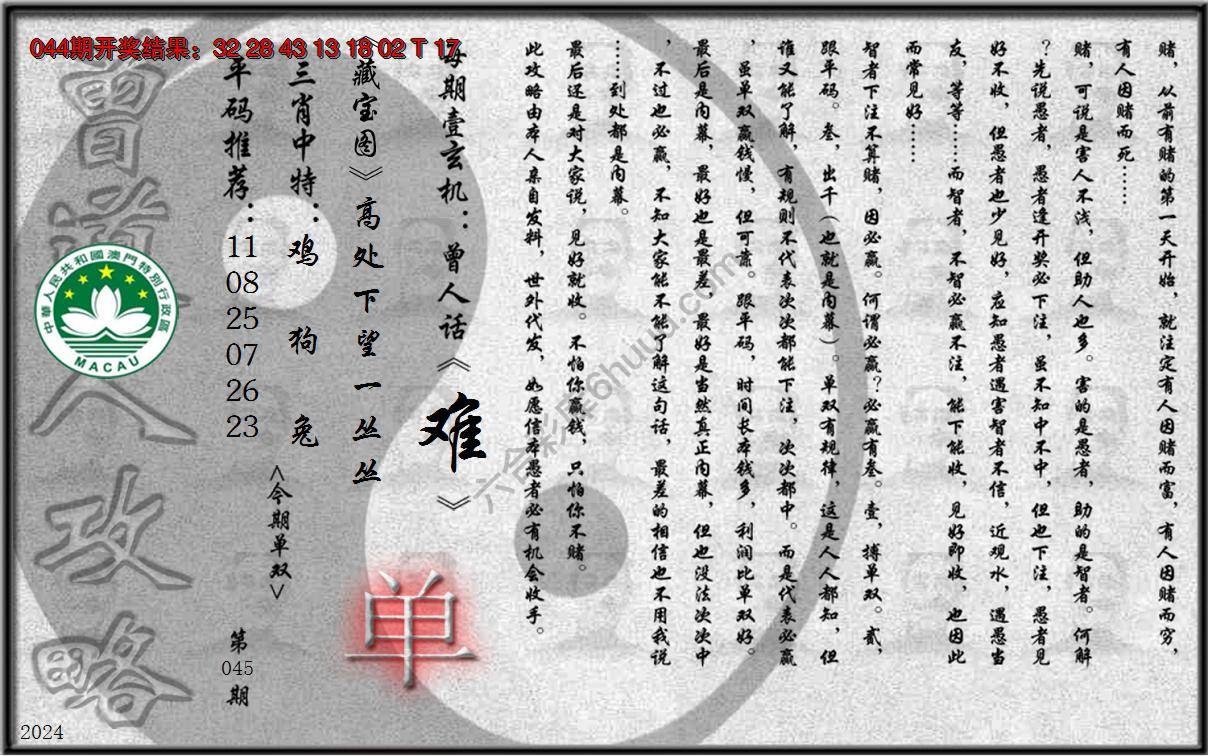 044期开奖结果：32 28 43 13 18 02 T 17
赌，从前有赌的第一天开始，就注定有人因赌而富，有人因赌而穷，
有人因赌而死……
赌，可说是害人不浅，但助人也多。害的是愚者，助的是智者。何解
？先说愚者，愚者逢开奖必下注，虽不知中不中，但也下注，愚者见
好不收，但愚者也少见好，应知愚者遇害智者不信，近观水，遇愚当
友，等等……而智者，不智必赢不注，能下能收，见好即收，也因此
而常见好……
智者下注不算赌，因必赢。何谓必赢？必赢有叁。壹，搏单双。贰，
跟平码。叁，出千（也就是内幕）。单双有规律，这是人人都知，但
谁又能了解，有规则不代表次次都能下注，次次都中。而是代表必赢
，虽单双赢钱慢，但可靠。跟平码，时间长本钱多，利润比单双好。
最后是内幕，最好也是最差，最好是当然真正内幕，但也没法次次中
，不过也必赢，不知大家能不能了解这句话，最差的相信也不用我说
……到处都是内幕。
最后还是对大家说，见好就收。不怕你赢钱，只怕你不赌。
此攻略由本人亲自发料，世外代发，如愿信本愚者必有机会收手。
每期壹玄机：曾人话《难》
《藏宝图》高处下望一丛丛
三肖中特：鸡 狗 兔
<今期单双>
单
平码推荐：
11
08
25
07
26
23
第
045
期
曾道人攻略
中華人民共和國澳門特別行政區
MACAU
2024
六合彩库6huuu.com